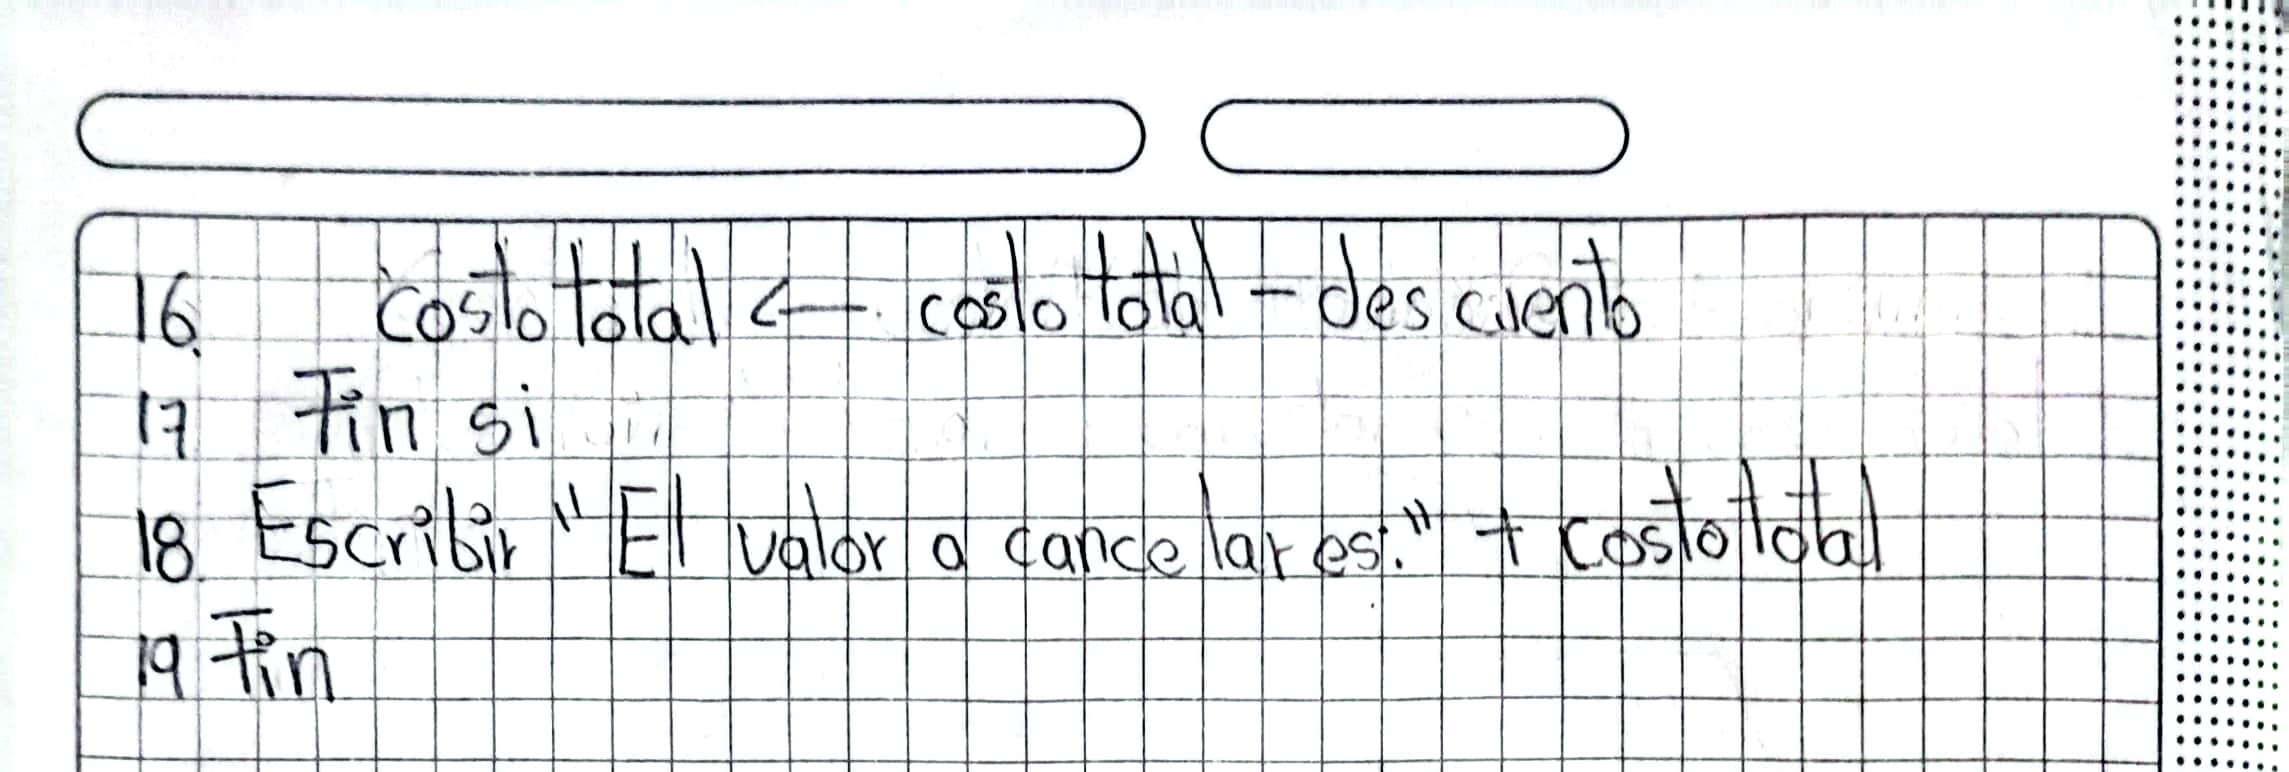 16. costo total ← costo total - des ciento
17. Fin si
18. Escribir "El valor a cancelar es:" + costo total
19 Fin